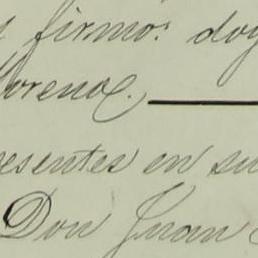 y firmo: doy
Morena.
esentes en su
Don Juan